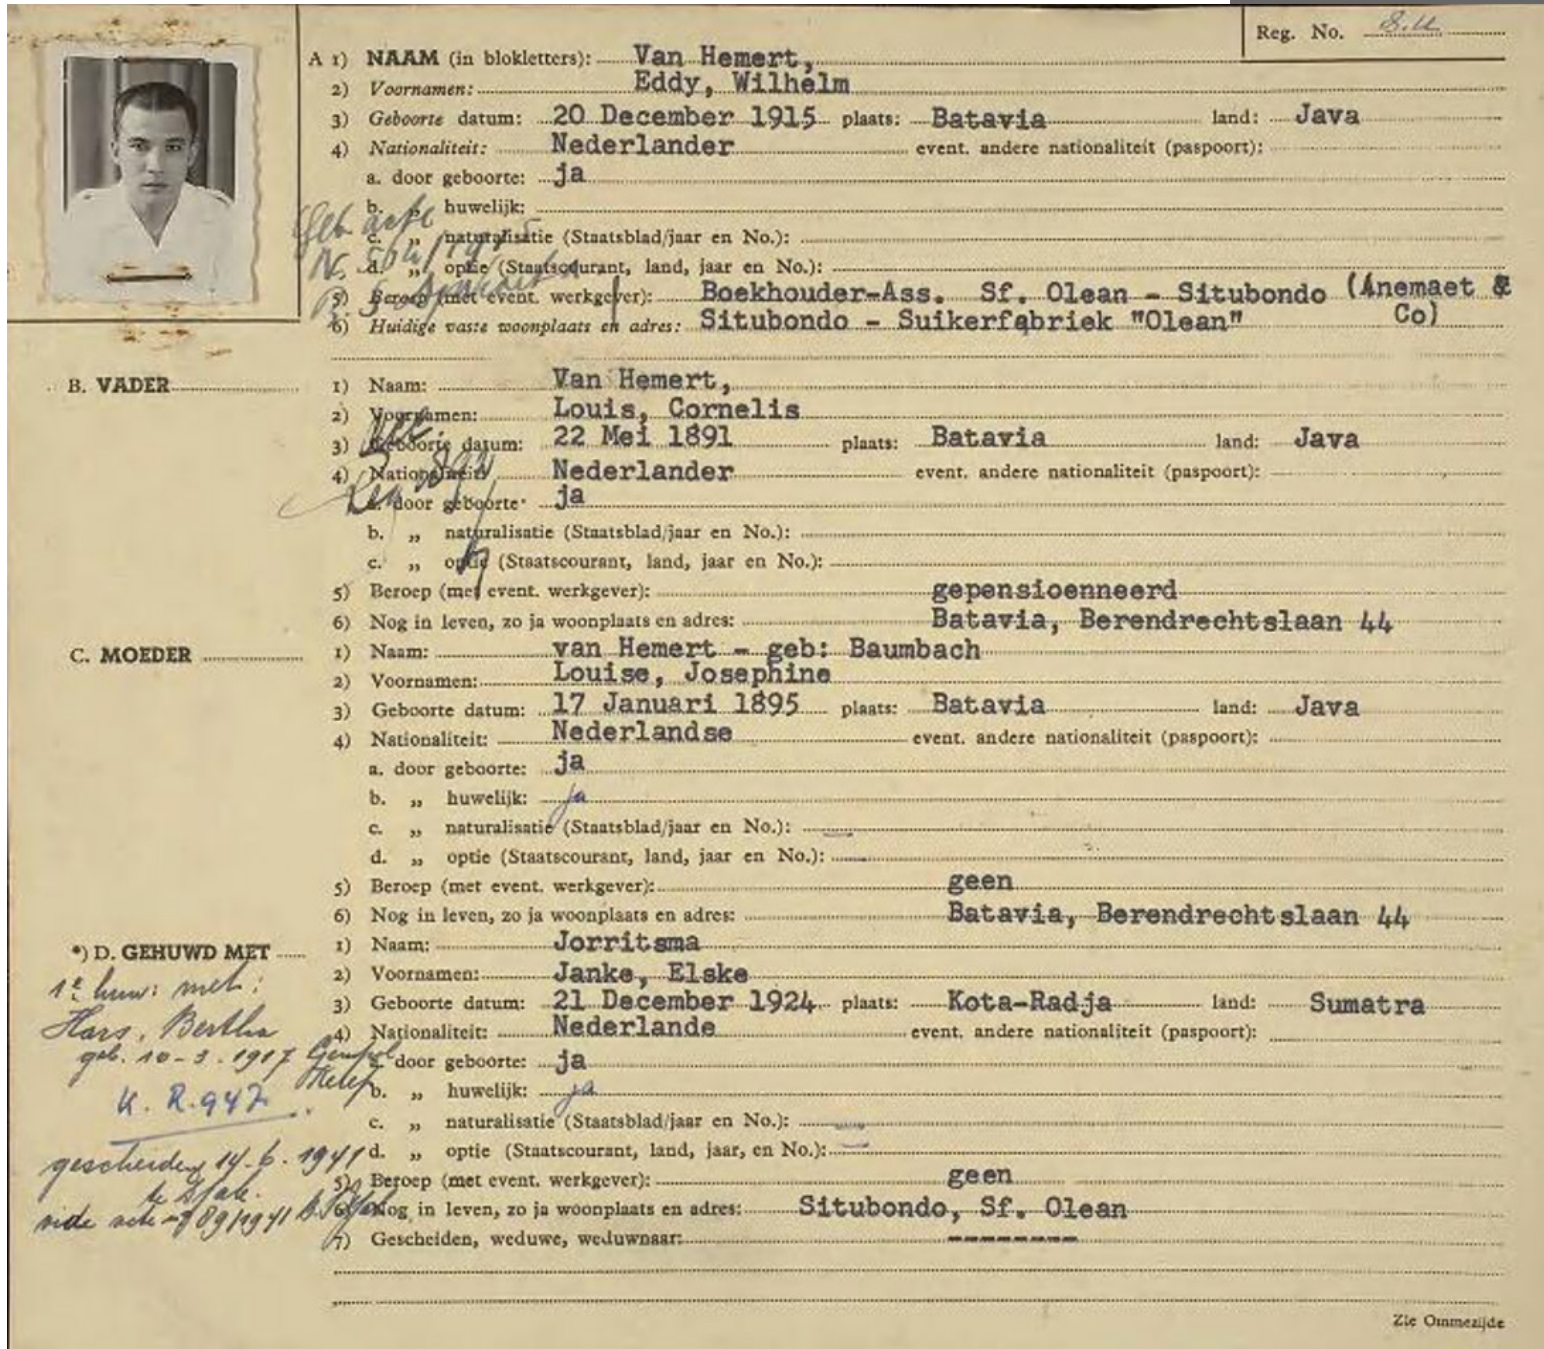 Reg. No.
A 1) NAAM (in blokletters): Van Hemert,
2) Voornamen: Eddy, Wilhelm
3) Geboorte datum: 20 December 1915 plaats: Batavia land: Java
4) Nationaliteit: Nederlander event. andere nationaliteit (paspoort):
a. door geboorte: ja
b. „ huwelijk:
c. „ naturalisatie (Staatsblad/jaar en No.):
d. „ optie (Staatscourant, land, jaar en No.):
5) Beroep (met event. werkgever): Boekhouder-Ass. Sf. Olean - Situbondo (Anemaet & Co)
6) Huidige vaste woonplaats en adres: Situbondo - Suikerfabriek "Olean"
B. VADER
1) Naam: Van Hemert,
2) Voornamen: Louis, Cornelis
3) Geboorte datum: 22 Mei 1891 plaats: Batavia land: Java
4) Nationaliteit: Nederlander event. andere nationaliteit (paspoort):
a. door geboorte: ja
b. „ naturalisatie (Staatsblad/jaar en No.):
c. „ optie (Staatscourant, land, jaar en No.):
5) Beroep (met event. werkgever): gepensioenneerd
6) Nog in leven, zo ja woonplaats en adres: Batavia, Berendrechtslaan 44
C. MOEDER
1) Naam: van Hemert - geb: Baumbach
2) Voornamen: Louise, Josephine
3) Geboorte datum: 17 Januari 1895 plaats: Batavia land: Java
4) Nationaliteit: Nederlandse event. andere nationaliteit (paspoort):
a. door geboorte: ja
b. „ huwelijk: ja
c. „ naturalisatie (Staatsblad/jaar en No.):
d. „ optie (Staatscourant, land, jaar en No.):
5) Beroep (met event. werkgever): geen
6) Nog in leven, zo ja woonplaats en adres: Batavia, Berendrechtslaan 44
*) D. GEHUWD MET
1) Naam: Jorritsma
2) Voornamen: Janke, Elske
3) Geboorte datum: 21 December 1924 plaats: Kota-Radja land: Sumatra
4) Nationaliteit: Nederlande event. andere nationaliteit (paspoort):
a. door geboorte: ja
b. „ huwelijk: ja
c. „ naturalisatie (Staatsblad/jaar en No.):
d. „ optie (Staatscourant, land, jaar, en No.):
5) Beroep (met event. werkgever): geen
6) Nog in leven, zo ja woonplaats en adres: Situbondo, Sf. Olean
7) Gescheiden, weduwe, weduwnaar: --------
1e huw: met:
Hars, Bertha
geb. 10-3-1917
K. R. 947
gescheiden 14-6-1941
vide acte
Zie Ommezijde